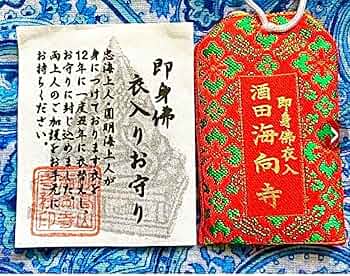 即身佛
衣入りお守り
忠海上人・圓明海上人が
身につけております衣を
12年に一度丑年に衣替えし
お守りに封じ込めました。
両上人のご加護をお守りに
お持ちください。
即身佛衣入
酒田海向寺